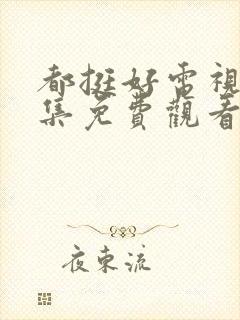 都挺好電視
集免費觀看
夜東流